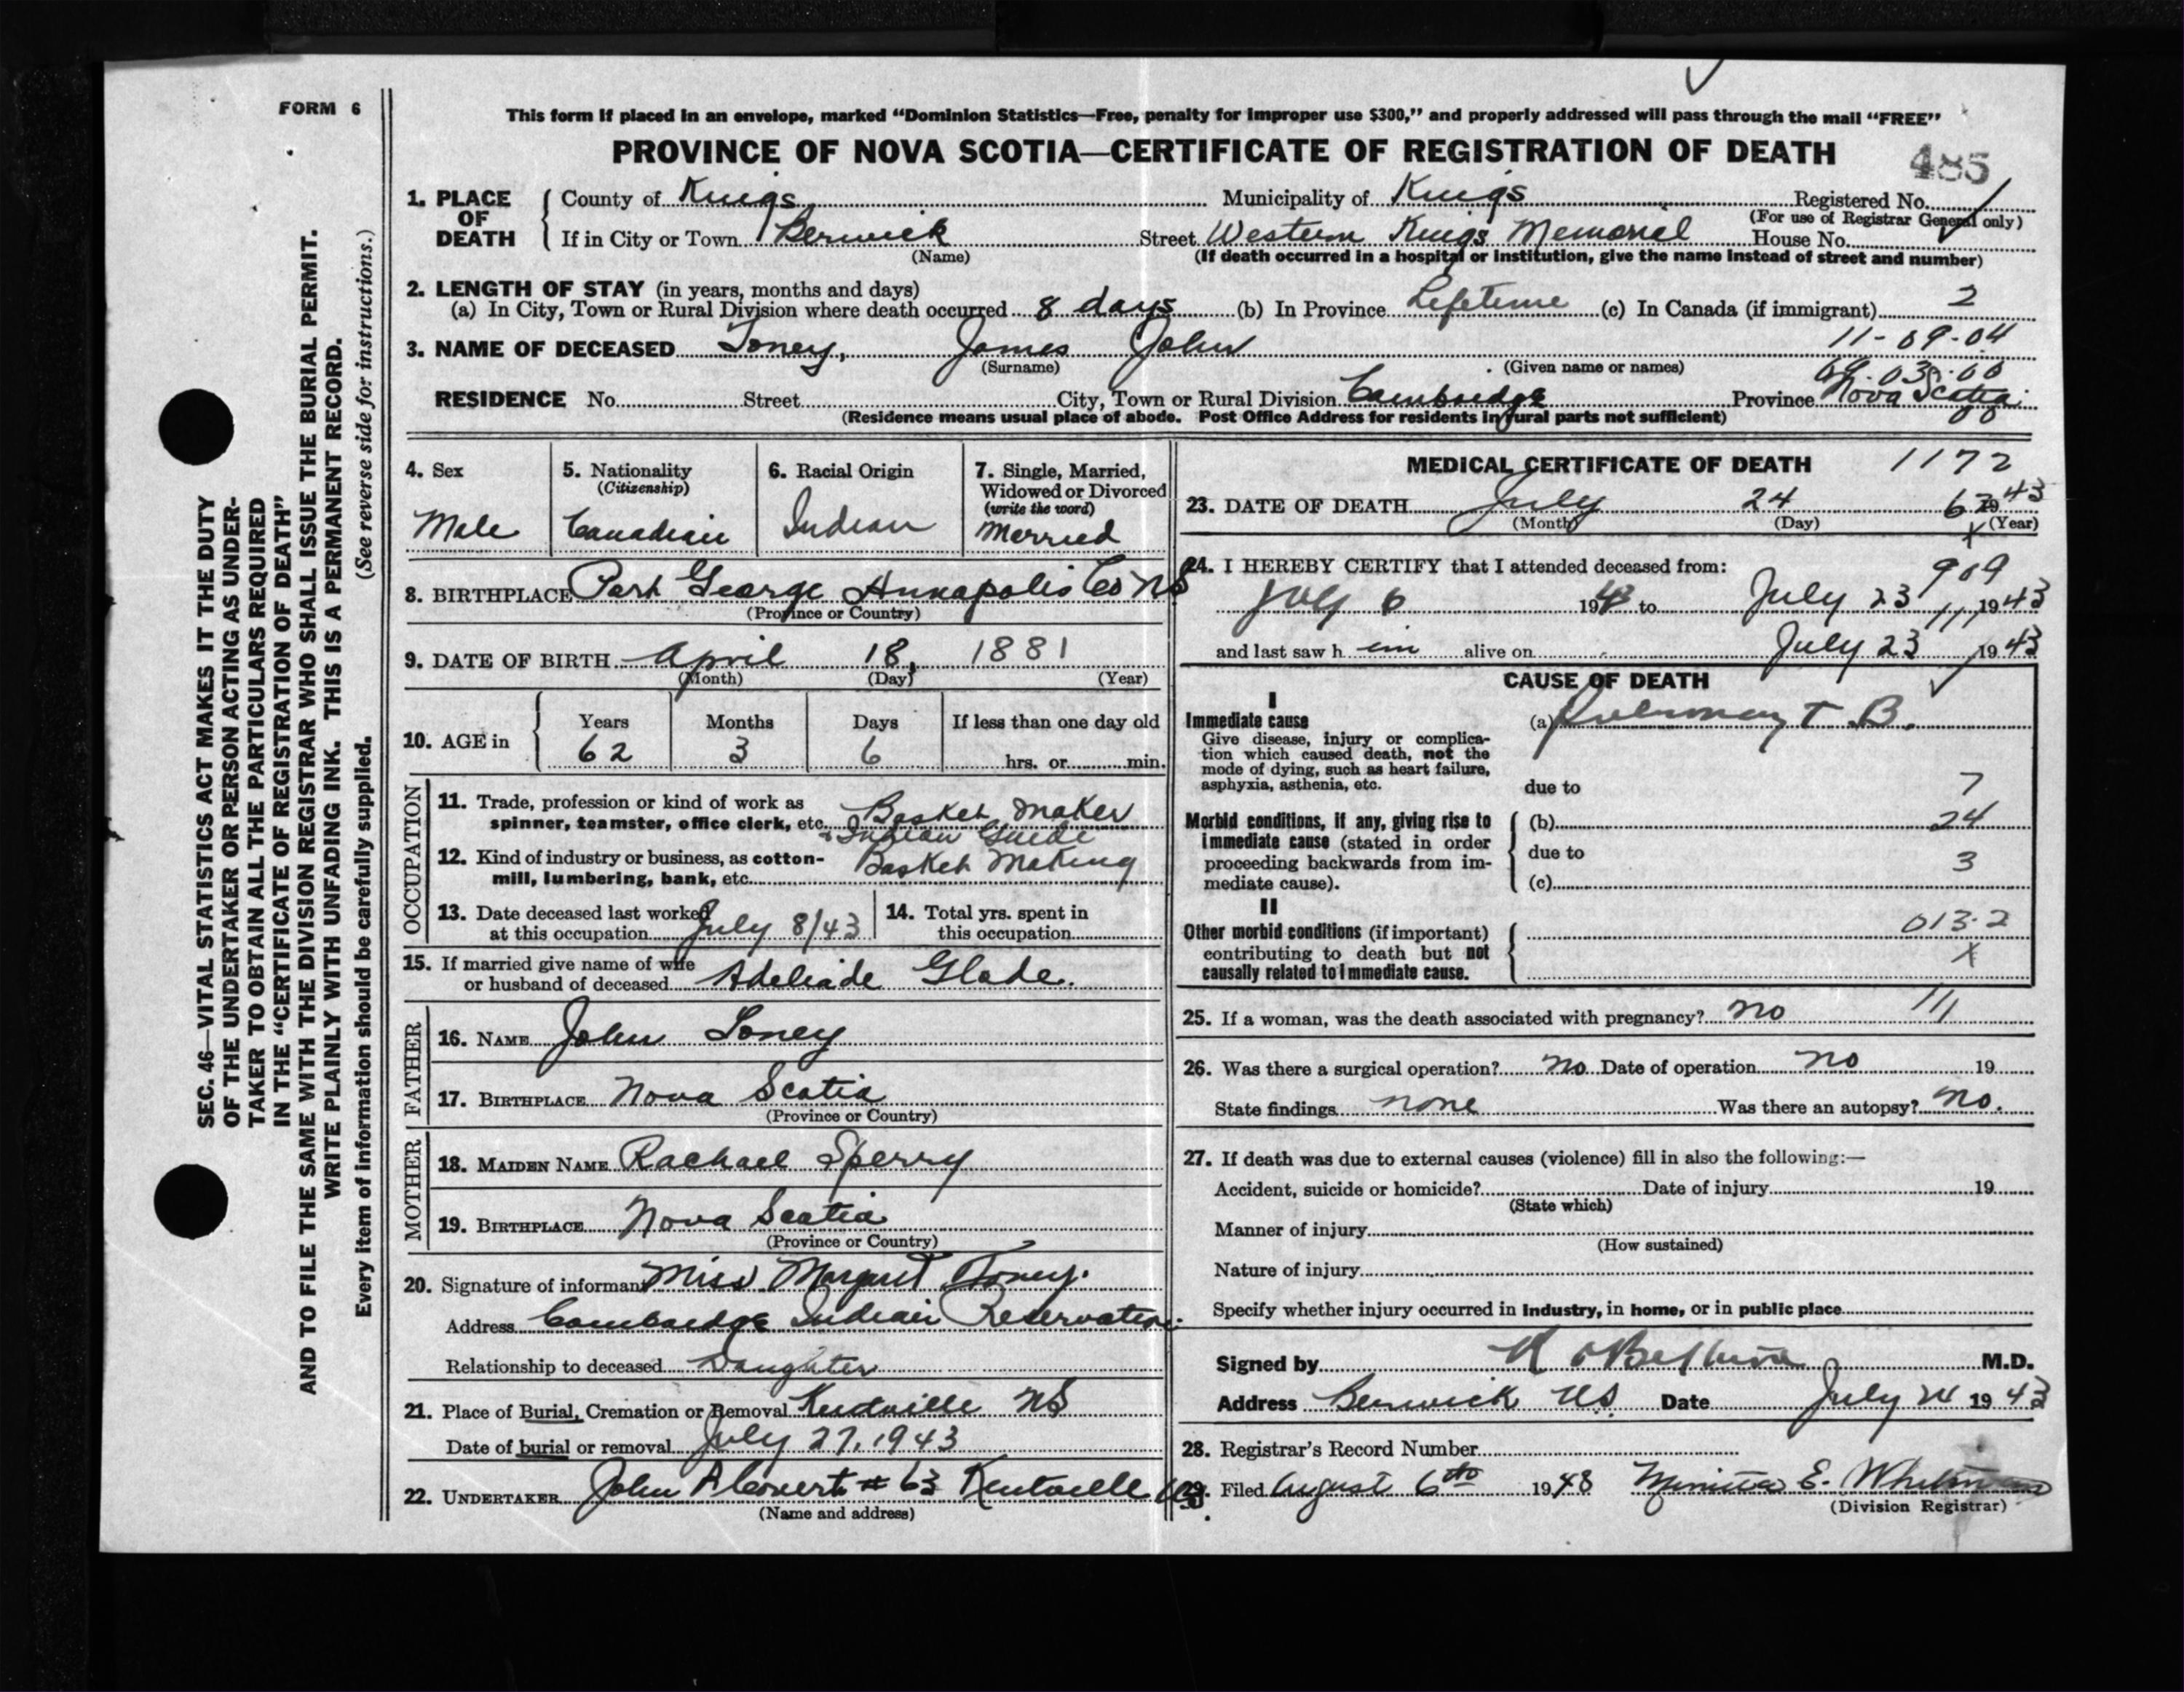 FORM 6
This form if placed in an envelope, marked "Dominion Statistics—Free, penalty for improper use $300," and properly addressed will pass through the mail "FREE"
PROVINCE OF NOVA SCOTIA—CERTIFICATE OF REGISTRATION OF DEATH
485
1. PLACE OF DEATH
County of Kings Municipality of Kings Registered No.
(For use of Registrar General only)
If in City or Town Berwick Street Western Kings Memorial House No.
(Name) (If death occurred in a hospital or institution, give the name instead of street and number)
2. LENGTH OF STAY (in years, months and days)
(a) In City, Town or Rural Division where death occurred 8 days (b) In Province Lifetime (c) In Canada (if immigrant) 2
11-09-04
3. NAME OF DECEASED Toney, James John
(Surname) (Given name or names)
RESIDENCE No. Street City, Town or Rural Division Cambridge Province Nova Scotia
(Residence means usual place of abode. Post Office Address for residents in rural parts not sufficient)
4. Sex
Male
5. Nationality
(Citizenship)
Canadian
6. Racial Origin
Indian
7. Single, Married,
Widowed or Divorced
(write the word)
Married
8. BIRTHPLACE Port George Annapolis Co NS
(Province or Country)
9. DATE OF BIRTH April 18, 1881
(Month) (Day) (Year)
10. AGE in
Years Months Days If less than one day old
62 3 6 hrs. or min.
OCCUPATION
11. Trade, profession or kind of work as
spinner, teamster, office clerk, etc. Basket Maker
+ Indian Guide
12. Kind of industry or business, as cotton-
mill, lumbering, bank, etc. Basket Making
13. Date deceased last worked
at this occupation July 8/43
14. Total yrs. spent in
this occupation
15. If married give name of wife
or husband of deceased Adeliade Glode.
FATHER
16. NAME John Toney
17. BIRTHPLACE Nova Scotia
(Province or Country)
MOTHER
18. MAIDEN NAME Rachael Sperry
19. BIRTHPLACE Nova Scotia
(Province or Country)
20. Signature of informant Miss Margaret Toney.
Address Cambridge Indian Reservation
Relationship to deceased Daughter
21. Place of Burial, Cremation or Removal Kentville NS
Date of burial or removal July 27, 1943
22. UNDERTAKER John A Covert # 63 Kentville
(Name and address)
MEDICAL CERTIFICATE OF DEATH 1172
23. DATE OF DEATH July 24 62 1943
(Month) (Day) (Year)
24. I HEREBY CERTIFY that I attended deceased from:
909
July 6 1943 to July 23 1943
111
and last saw h im alive on July 23 1943
CAUSE OF DEATH
I
Immediate cause
Give disease, injury or complica-
tion which caused death, not the
mode of dying, such as heart failure,
asphyxia, asthenia, etc.
(a) Pulmonary T.B.
due to 7
Morbid conditions, if any, giving rise to
immediate cause (stated in order
proceeding backwards from im-
mediate cause).
(b) 24
due to 3
(c)
II
Other morbid conditions (if important)
contributing to death but not
causally related to immediate cause.
013.2
X
111
25. If a woman, was the death associated with pregnancy? no
26. Was there a surgical operation? no Date of operation no 19
State findings none Was there an autopsy? no.
27. If death was due to external causes (violence) fill in also the following:—
Accident, suicide or homicide? Date of injury 19
(State which)
Manner of injury
(How sustained)
Nature of injury
Specify whether injury occurred in industry, in home, or in public place
Signed by M.D.
Address Berwick NS. Date July 24 1943
28. Registrar's Record Number
29. Filed August 6th 1943 E. Whitman
(Division Registrar)
SEC. 46—VITAL STATISTICS ACT MAKES IT THE DUTY
OF THE UNDERTAKER OR PERSON ACTING AS UNDER-
TAKER TO OBTAIN ALL THE PARTICULARS REQUIRED
IN THE "CERTIFICATE OF REGISTRATION OF DEATH"
AND TO FILE THE SAME WITH THE DIVISION REGISTRAR WHO SHALL ISSUE THE BURIAL PERMIT.
WRITE PLAINLY WITH UNFADING INK. THIS IS A PERMANENT RECORD.
Every item of information should be carefully supplied. (See reverse side for instructions.)